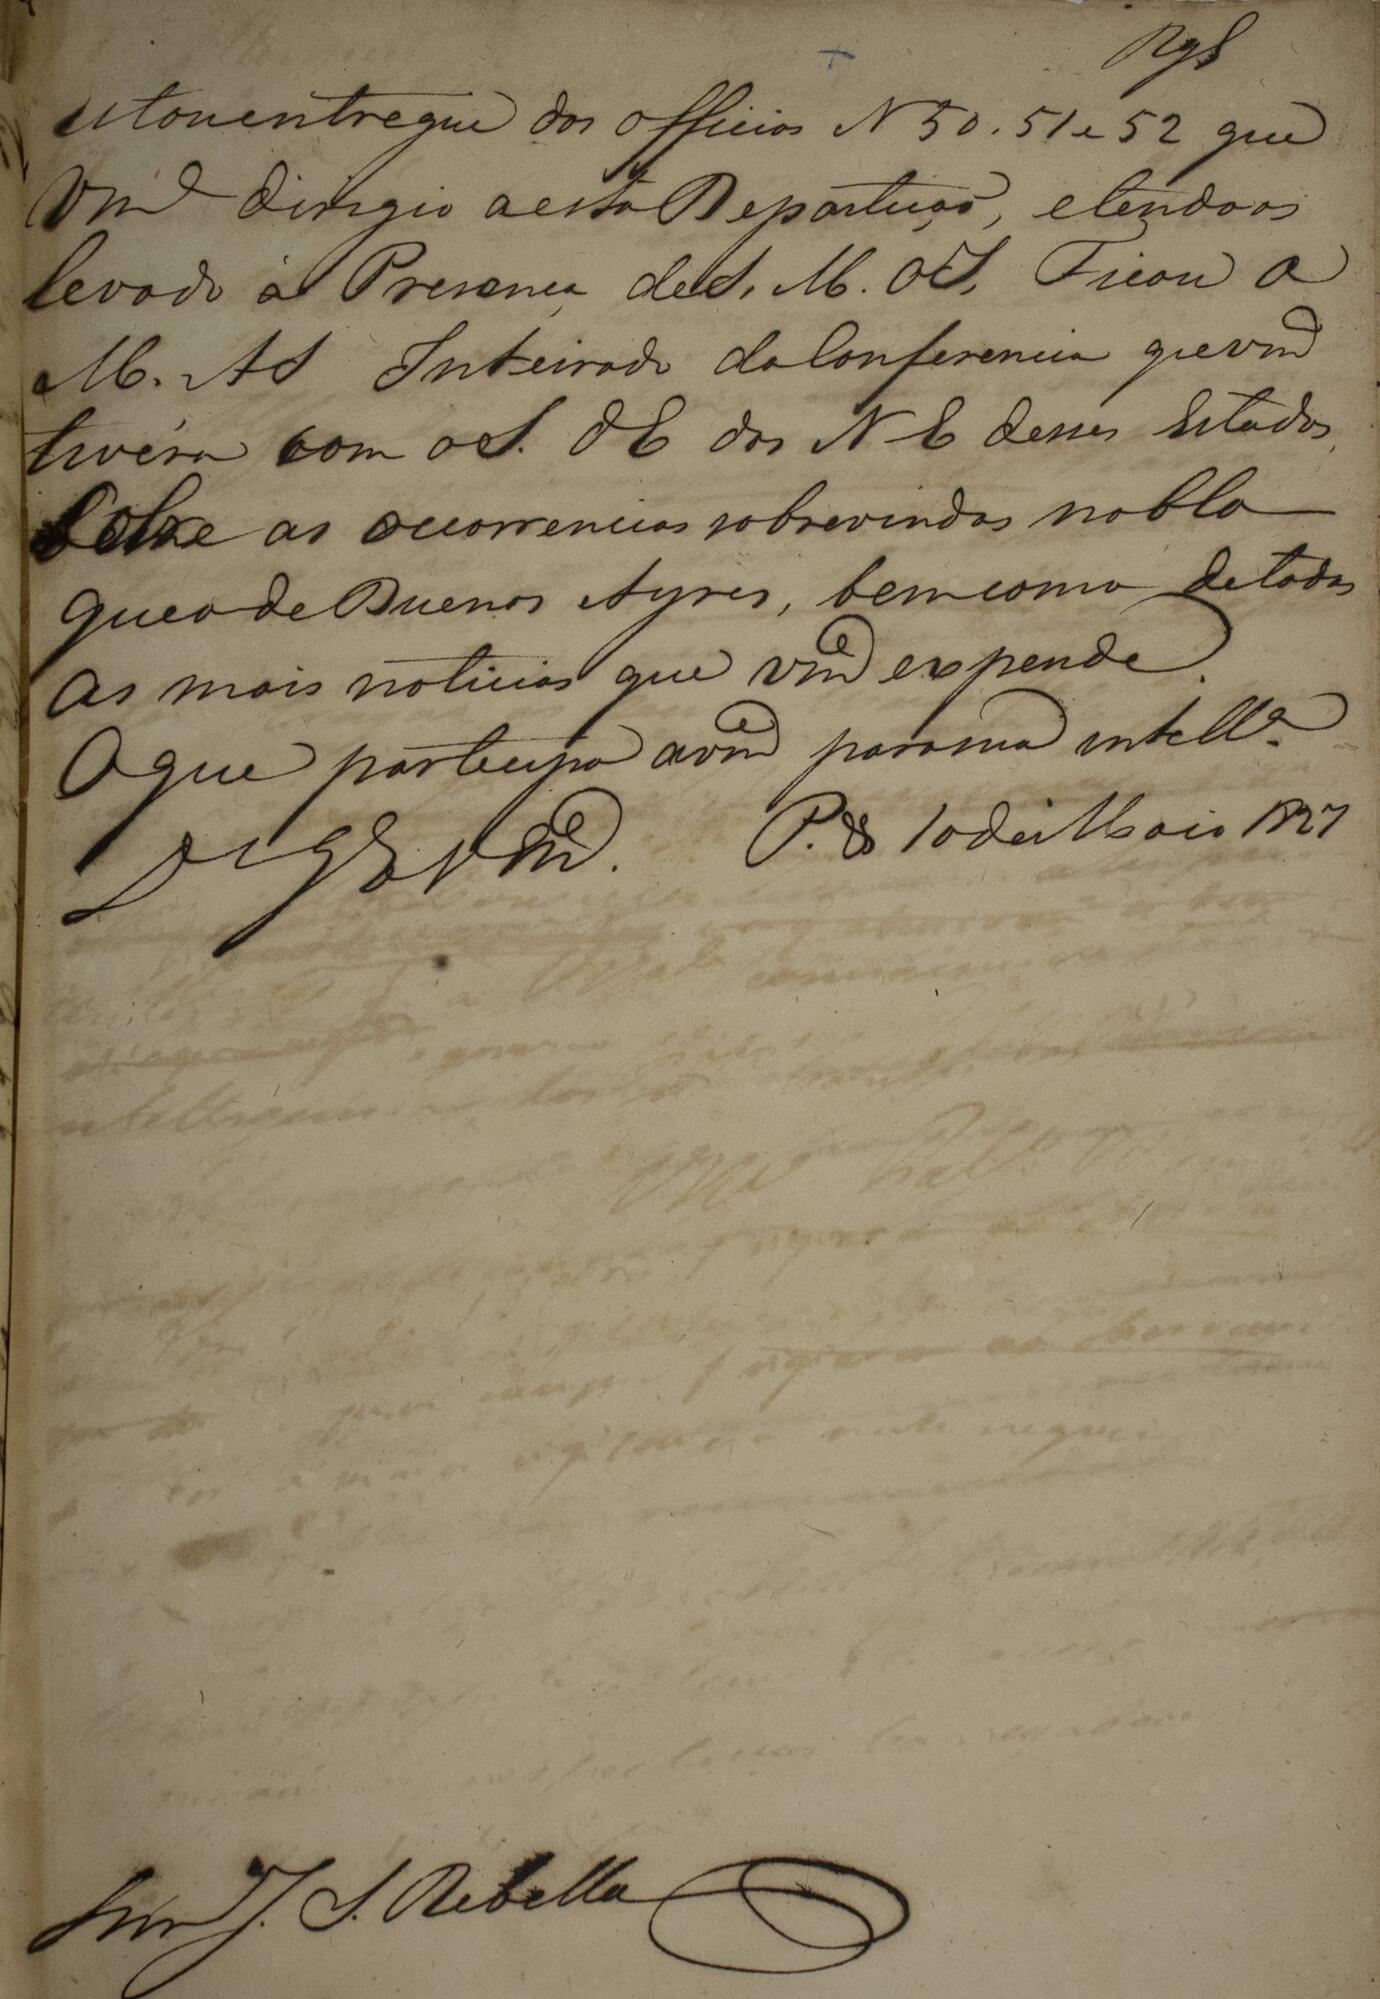 Rgd
estou entregue dos officios N 50. 51 e 52 que
Vm.ce dirigio a esta Repartição, e tendo os
levado à Presença de S. M. O I. Ficou o
M. A S Inteirado da Conferencia que vm.ce
tivéra com o S. d E dos N E desses Estados,
Sobre as ocorrencias sobrevindas no blo
queo de Buenos Ayres, bem como de todas
as mais noticias que vm.ce expende.
O que participo a vm.ce para sua intell.a
D. G. a V M.ce. P. 10 de Maio 1827
Snr J. S. Rebello